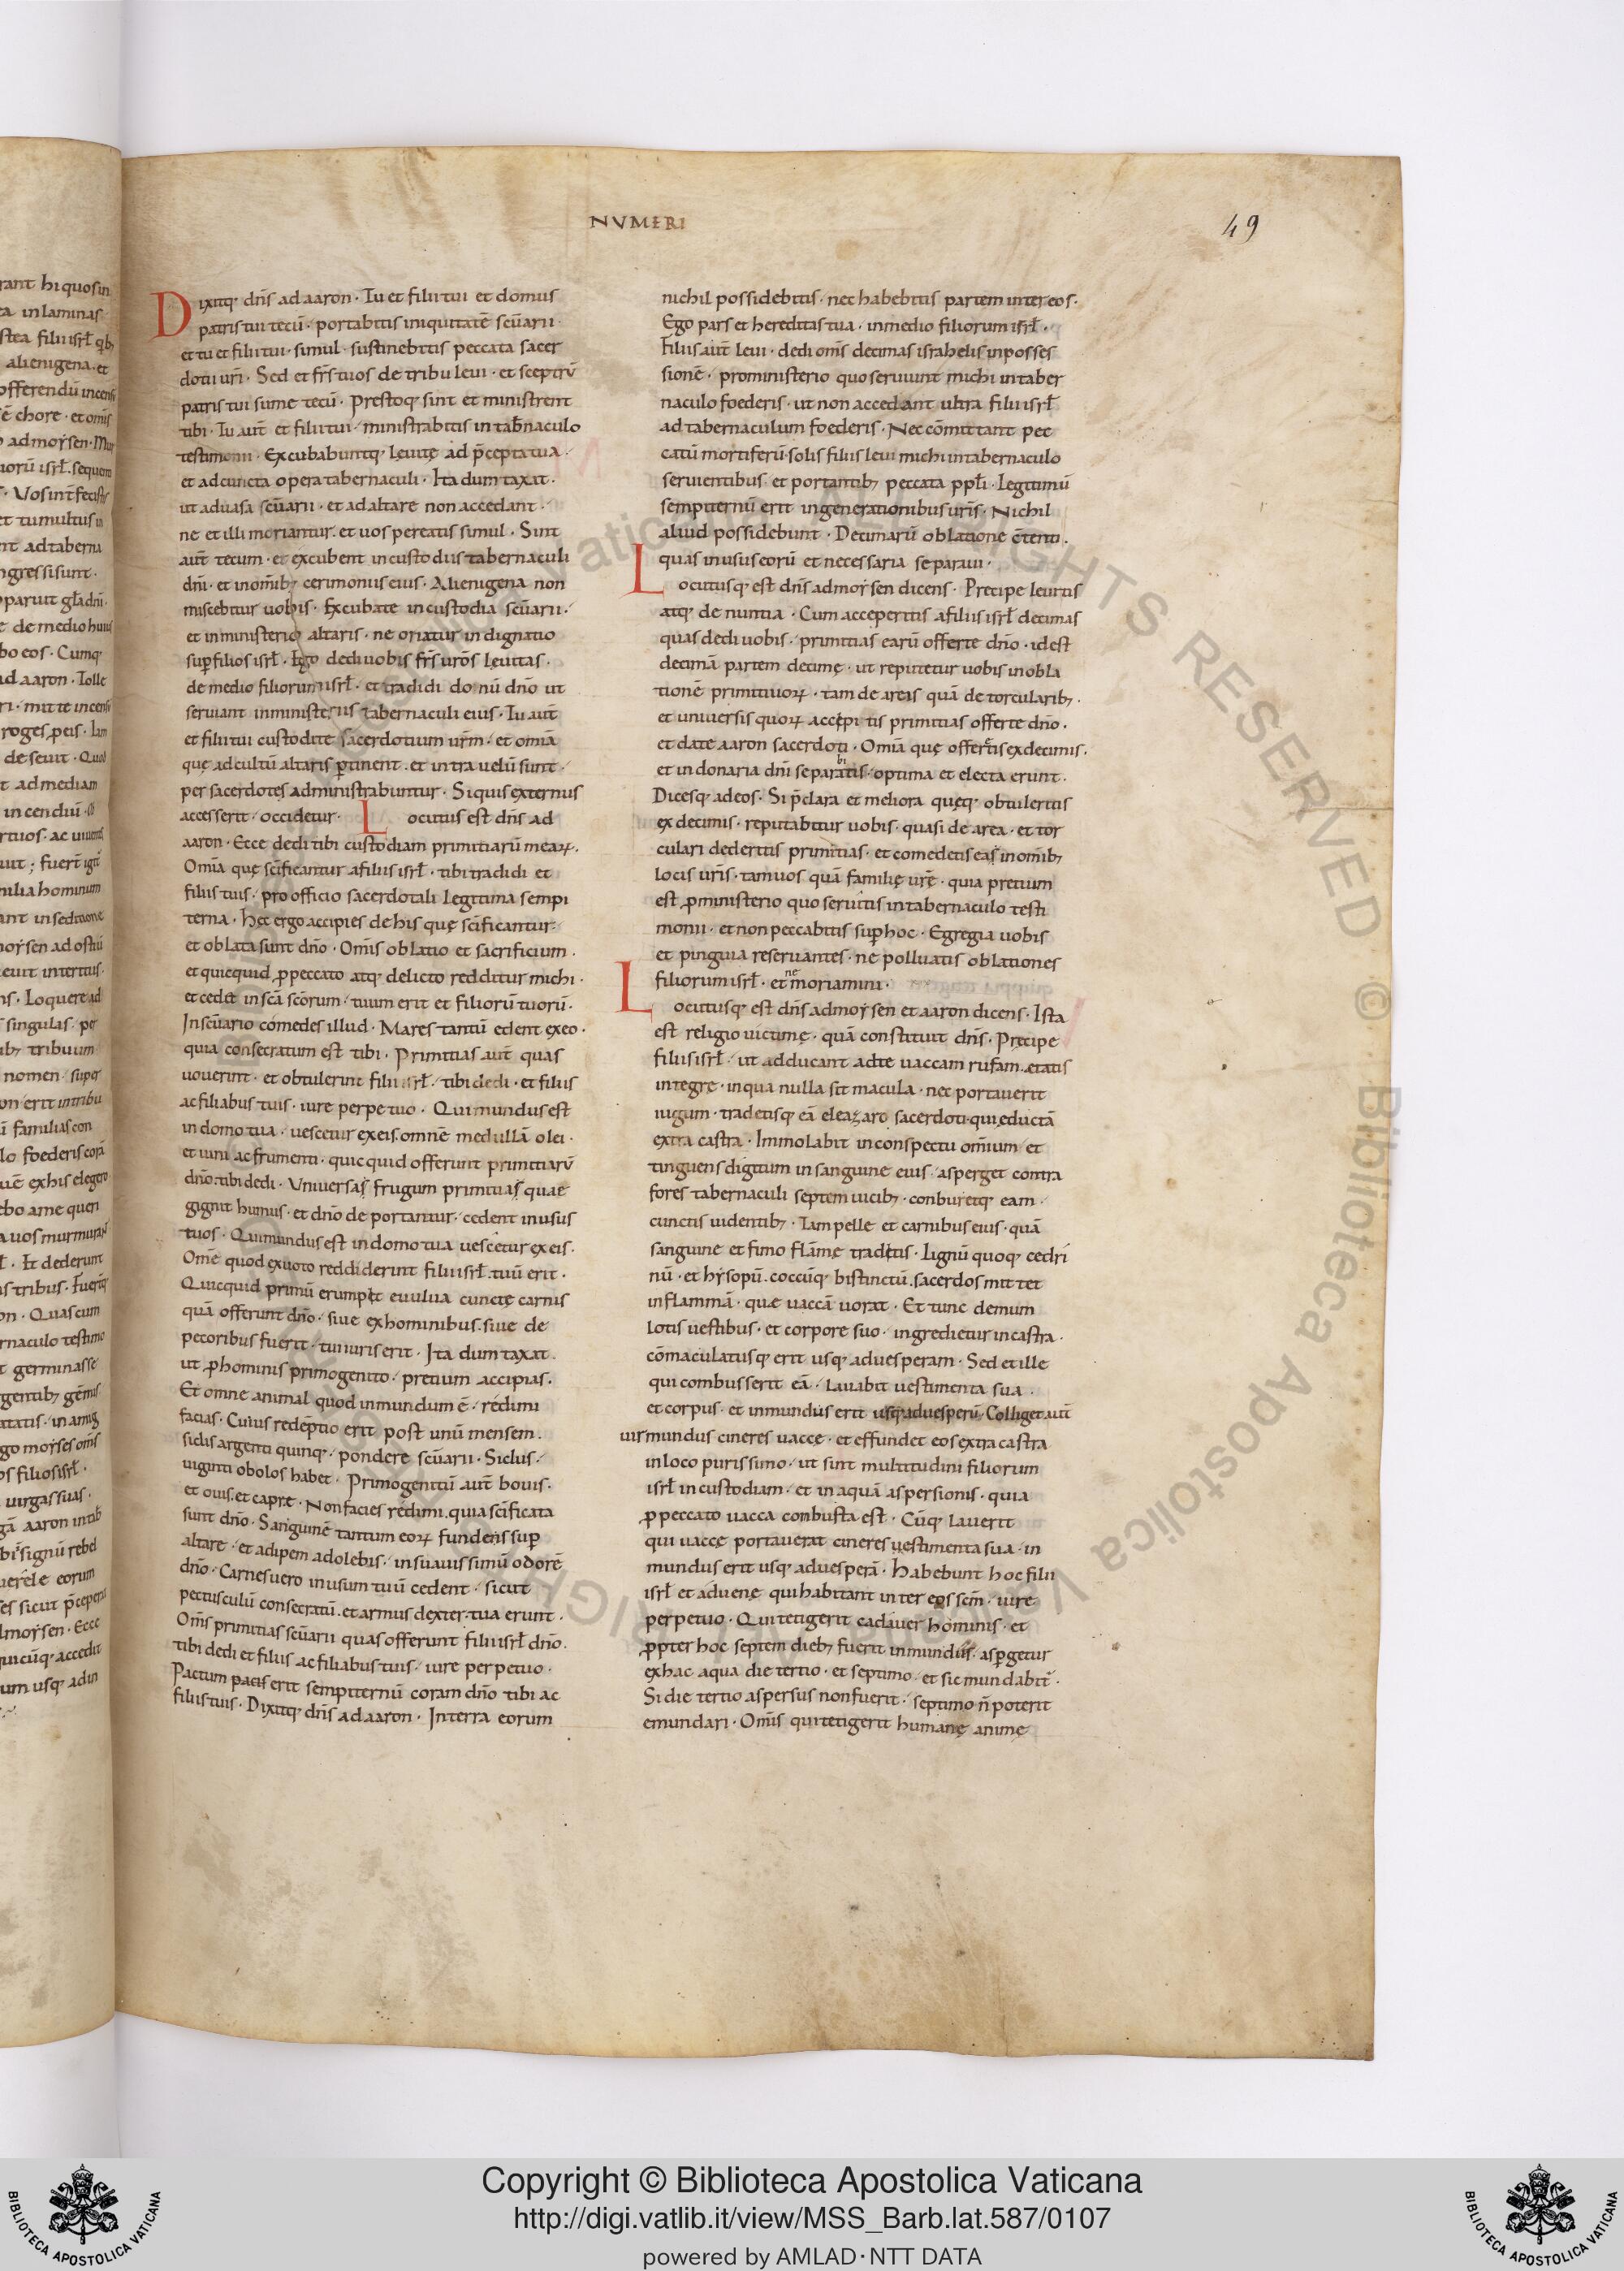 NVMERI
49
Dixitq; dñs ad aaron · Tu et filii tui et domus
patris tui tecū · portabitis iniquitatē sc̄uarii ·
et tu et filii tui · simul · sustinebitis peccata sacer
dotii ur̄i · Sed et fr̄s tuos de tribu leui · et sceptrū
patris tui sume tecū · Prestoq; sint et ministrent
tibi · Tu aūt et filii tui · ministrabitis in tab̄naculo
testimonii · Excubabuntq; leuitę ad p̄cepta tua ·
et ad cuncta opera tabernaculi · Ita dum taxat ·
ut ad uasa sc̄uarii · et ad altare non accedant ·
ne et illi moriantur · et uos pereatis simul · Sint
aūt tecum · et excubent in custodiis tabernaculi
dñi · et in om̄ib; cerimoniis eius · Alienigena non
miscebitur uobis · Excubate in custodia sc̄uarii ·
et in ministerio altaris · ne oriatur indignatio
sup̄ filios isrł · Ego dedi uobis fr̄s ur̄os leuitas ·
de medio filiorum isrł · et tradidi donū dño ut
seruiant in ministeriis tabernaculi eius · Tu aūt
et filii tui custodite sacerdotium ur̄m · et omīa
quę ad cultū altaris ꝑtinent · et intra uelū sunt ·
per sacerdotes administrabuntur · Siquis externus
accesserit · occidetur · Locutus est dñs ad
aaron · Ecce dedi tibi custodiam primitiarū meaꝝ ·
Omīa quę sc̄ificantur a filiis isrł · tibi tradidi et
filiis tuis · pro officio sacerdotali legitima sempi
terna · Hęc ergo accipies de his quę sc̄ificantur ·
et oblata sunt dño · Om̄is oblatio et sacrificium ·
et quicquid ꝓ peccato atq; delicto redditur michi ·
et cedet in sc̄a sc̄orum · tuum erit et filiorū tuorū ·
In sc̄uario comedes illud · Mares tantū edent ex eo ·
quia consecratum est tibi · Primitias aūt quas
uouerint · et obtulerint filii isrł · tibi dedi · et filiis
ac filiabus tuis · iure perpetuo · Qui mundus est
in domo tua · uescetur ex eis · omnē medullā olei ·
et uini ac frumenti · quicquid offerunt primitiarū
dño · tibi dedi · Vniuersas frugum primitias quae
gignit humus · et dño deportantur · cedent in usus
tuos · Qui mundus est in domo tua uescetur ex eis ·
Om̄e quod ex uoto reddiderint filii isrł · tuū erit ·
Quicquid primū erumpet e uulua cunctę carnis
quā offerunt dño · siue ex hominibus · siue de
pecoribus fuerit · tui iuris erit · Ita dum taxat ·
ut ꝓ hominis primogenito · pretium accipias ·
Et omne animal quod inmundum ē · redimi
facias · Cuius redēptio erit post unū mensem ·
siclis argenti quinq; · pondere sc̄uarii · Siclus ·
uiginti obolos habet · Primogenitū aūt bouis ·
et ouis · et caprę · Non facies redimi · quia sc̄ificata
sunt dño · Sanguinē tantum eoꝝ fundens sup̄
altare · et adipem adolebis · in suauissimū odorē
dño · Carnes uero in usum tuū cedent · sicut
pectusculū consecratū · et armus dexter · tua erunt ·
Om̄s primitias sc̄uarii quas offerunt filii isrł dño ·
tibi dedi et filiis ac filiabus tuis · iure perpetuo ·
Pactum pacis erit sempiternū coram dño tibi ac
filiis tuis · Dixitq; dñs ad aaron · In terra eorum
nichil possidebitis · nec habebitis partem inter eos ·
Ego pars et hereditas tua · in medio filiorum isrł ·
Filiis aūt leui · dedi om̄s decimas israhelis in posses
sionē · pro ministerio quo seruiunt michi in taber
naculo foederis · ut non accedant ultra filii isrł
ad tabernaculum foederis · Nec cōmittant pec
catū mortiferū · solis filiis leui michi in tabernaculo
seruientibus · et portantib; peccata ppłi · Legitimū
sempiternū erit in generationibus ur̄is · Nichil
aliud possidebunt · Decimarū oblatione c̄tenti ·
quas in usus eorū et necessaria separaui ·
Locutusq; est dñs ad moysen dicens · Precipe leuitis
atq; denuntia · Cum acceperitis a filiis isrł decimas
quas dedi uobis · primitias earū offerte dño · id est
decimā partem decimę · ut reputetur uobis in obla
tionē primitiuoꝝ · tam de areis quā de torcularib; ·
et uniuersis quoꝝ accepitis primitias offerte dño ·
et date aaron sacerdoti · Omīa quę offertis ex decimis ·
et in donaria dñi separabitis · optima et electa erunt ·
Dicesq; ad eos · Si p̄clara et meliora quęq; obtuleritis
ex decimis · reputabitur uobis · quasi de area · et tor
culari dederitis primitias · et comedetis eas in om̄ib;
locis ur̄is · tam uos quā familię ur̄ę · quia pretium
est ꝓ ministerio quo seruitis in tabernaculo testi
monii · et non peccabitis sup̄ hoc · Egregia uobis
et pinguia reseruantes · ne polluatis oblationes
filiorum isrł · et ne moriamini ·
Locutusq; est dñs ad moysen et aaron dicens · Ista
est religio uictimę · quā constituit dñs · Pręcipe
filiis isrł · ut adducant ad te uaccam rufam · etatis
integre · in qua nulla sit macula · nec portauerit
iugum · tradetisq; eā eleazaro sacerdoti · qui eductā
extra castra · Immolabit in conspectu om̄ium · et
tinguens digitum in sanguine eius · asperget contra
fores tabernaculi septem uicib; · conburetq; eam ·
cunctis uidentib; · Tam pelle et carnibus eius · quā
sanguine et fimo flāme traditis · Lignū quoq; cedri
nū · et hysopū · coccūq; bistinctū · sacerdos mittet
in flammā · quę uaccā uorat · Et tunc demum
lotis uestibus · et corpore suo · ingredietur in castra ·
cōmaculatusq; erit usq; ad uesperam · Sed et ille
qui combusserit eā · lauabit uestimenta sua ·
et corpus · et inmundus erit usq; ad uesperū · Colliget aūt
uir mundus cineres uaccę · et effundet eos extra castra
in loco purissimo · ut sint multitudini filiorum
isrł in custodiam · et in aquā aspersionis · quia
ꝓ peccato uacca conbusta est · Cūq; lauerit
qui uaccę portauerat cineres uestimenta sua · in
mundus erit usq; ad uesperā · Habebunt hoc filii
isrł et aduenę qui habitant inter eos sc̄m · iure
perpetuo · Qui tetigerit cadauer hominis · et
ꝓpter hoc septem dieb; fuerit inmundus · asp̄getur
ex hac aqua die tertio · et septimo · et sic mundabit̄ ·
Si die tertio aspersus non fuerit · septimo n̄ poterit
emundari · Om̄is qui tetigerit humanę animę
Copyright © Biblioteca Apostolica Vaticana
http://digi.vatlib.it/view/MSS_Barb.lat.587/0107
powered by AMLAD·NTT DATA
BIBLIOTECA APOSTOLICA VATICANA
BIBLIOTECA APOSTOLICA VATICANA